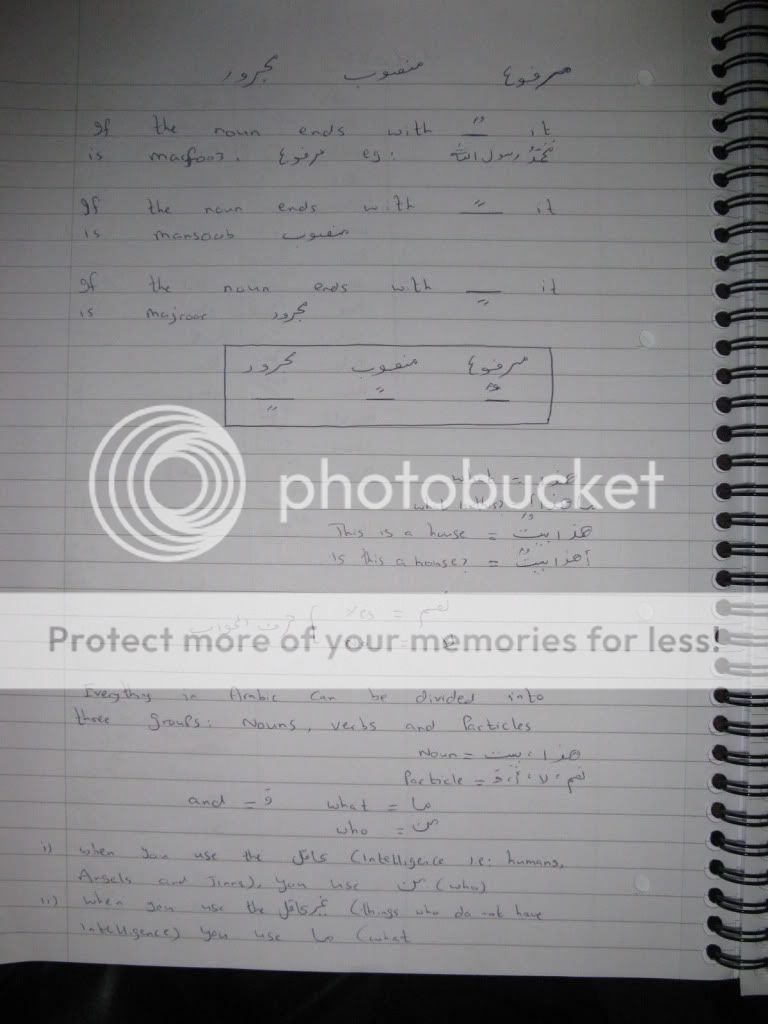 مرفوع منصوب مجرور
If the noun ends with ـٌ it
is marfoo3. مرفوع eg: مُحَمَّدٌ رسول الله
If the noun ends with ـً it
is mansoob منصوب
If the noun ends with ـٍ it
is majroor مجرور
مرفوع منصوب مجرور
ـٌ ـً ـٍ
photobucket
This is a house = هذا بيتٌ
Is this a house? = أهذا بيتٌ
yes = نعم } حرف الجواب
Protect more of your memories for less!
Everything in Arabic can be divided into
three groups: Nouns, verbs and Particles
Noun = هذا، بيت
Particle = نعم، لا، أ، وَ
and = وَ what = ما
who = من
i) when you use the عاقل (intelligence ie: humans,
Angels and Jinns), you use من (who)
ii) when you use the غير عاقل (things who do not have
intelligence) you use ما (what